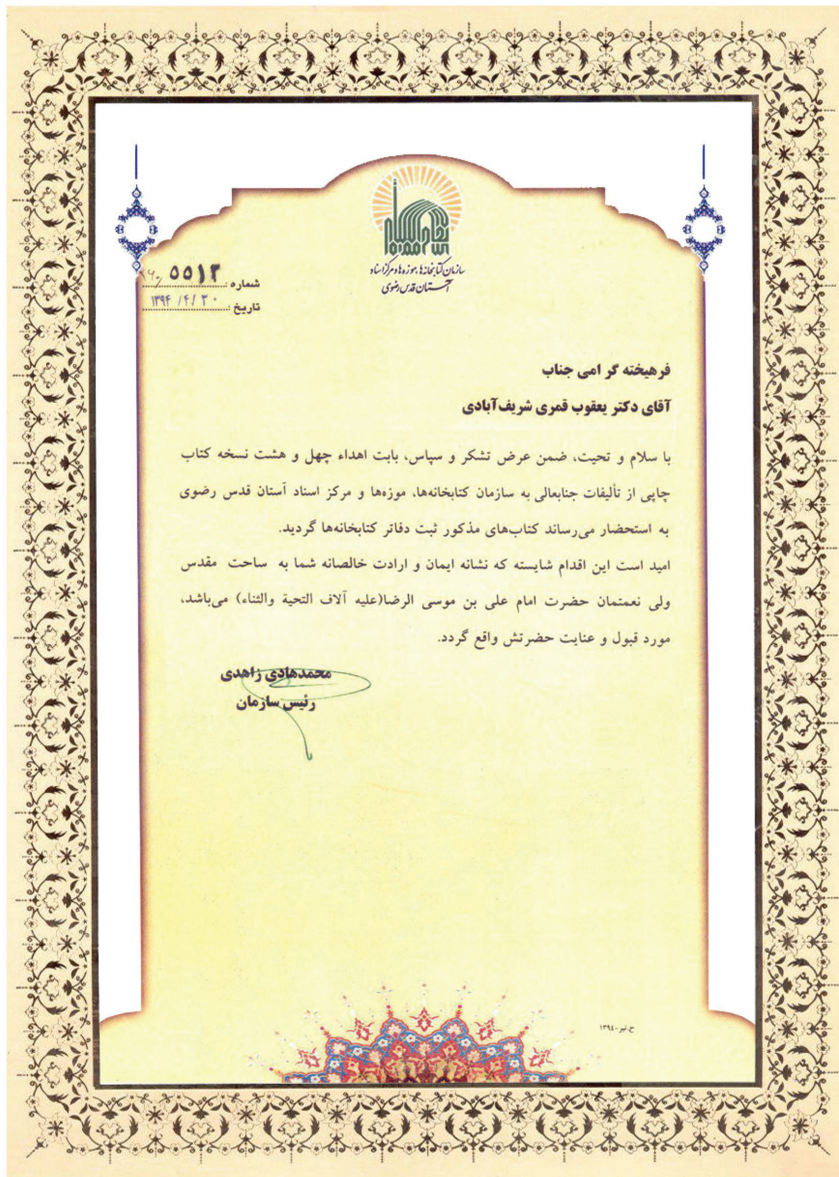 سازمان کتابخانه‌ها، موزه‌ها و مرکز اسناد
آستان قدس رضوی
شماره : ۵۵۱۲
تاریخ : ۱۳۹۴/۴/۳۰
فرهیخته گرامی جناب
آقای دکتر یعقوب قمری شریف‌آبادی
با سلام و تحیت، ضمن عرض تشکر و سپاس، بابت اهداء چهل و هشت نسخه کتاب
چاپی از تألیفات جنابعالی به سازمان کتابخانه‌ها، موزه‌ها و مرکز اسناد آستان قدس رضوی
به استحضار می‌رساند کتاب‌های مذکور ثبت دفاتر کتابخانه‌ها گردید.
امید است این اقدام شایسته که نشانه ایمان و ارادت خالصانه شما به ساحت مقدس
ولی نعمتمان حضرت امام علی بن موسی الرضا(علیه آلاف التحیة والثناء) می‌باشد،
مورد قبول و عنایت حضرتش واقع گردد.
محمدهادی زاهدی
رئیس سازمان
ح.تیر-۱۳۹٤